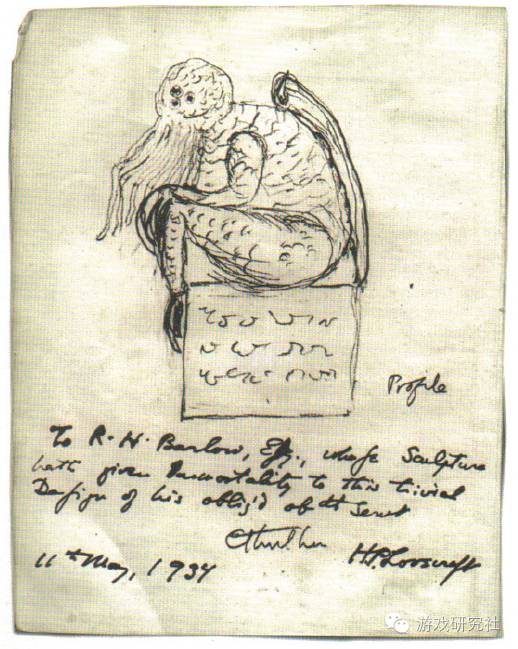 Profile
To R. H. Barlow, Esq., whose Sculpture
hath given Immortality to this trivial
Design of his oblig'd obt Servt
Cthulhu
HPLovecraft
11th May, 1934
游戏研究社